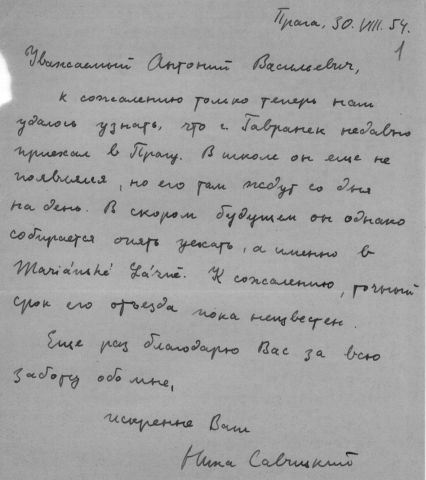 Прага, 30. VIII. 54.
1
Уважаемый Антоний Васильевич,
к сожалению только теперь нам
удалось узнать, что г. Гавранек недавно
приехал в Прагу. В школе он еще не
появился, но его там ждут со дня
на день. В скором будущем он однако
собирается опять уехать, а именно в
Mariánské Lázně. К сожалению, точный
срок его отъезда пока неизвестен.
Еще раз благодарю Вас за всю
заботу обо мне,
искренне Ваш
Ника Савицкий